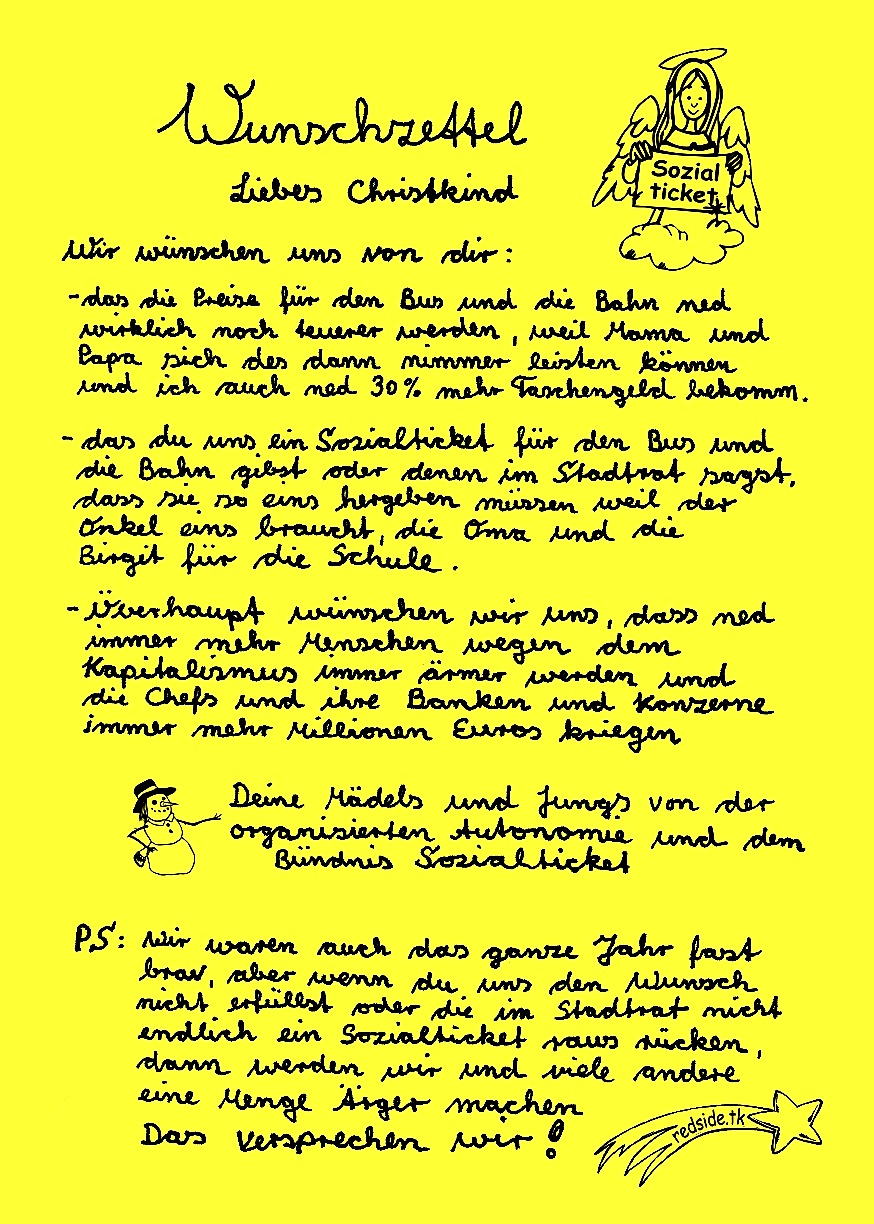 Wunschzettel
Sozial
ticket
Liebes Christkind
Wir wünschen uns von dir:
-das die Preise für den Bus und die Bahn ned
wirklich noch teuerer werden, weil Mama und
Papa sich des dann nimmer leisten können
und ich auch ned 30% mehr Taschengeld bekomm.
- das du uns ein Sozialticket für den Bus und
die Bahn gibst oder denen im Stadtrat sagst,
dass sie so eins hergeben müssen weil der
Onkel eins braucht, die Oma und die
Birgit für die Schule.
- Überhaupt wünschen wir uns, dass ned
immer mehr Menschen wegen dem
Kapitalismus immer ärmer werden und
die Chefs und ihre Banken und Konzerne
immer mehr Millionen Euros kriegen
Deine Mädels und Jungs von der
organisierten Autonomie und dem
Bündnis Sozialticket
PS: Wir waren auch das ganze Jahr fast
brav, aber wenn du uns den Wunsch
nicht erfüllst oder die im Stadtrat nicht
endlich ein Sozialticket raus rücken,
dann werden wir und viele andere
eine Menge Ärger machen
Das versprechen wir!
redside.tk